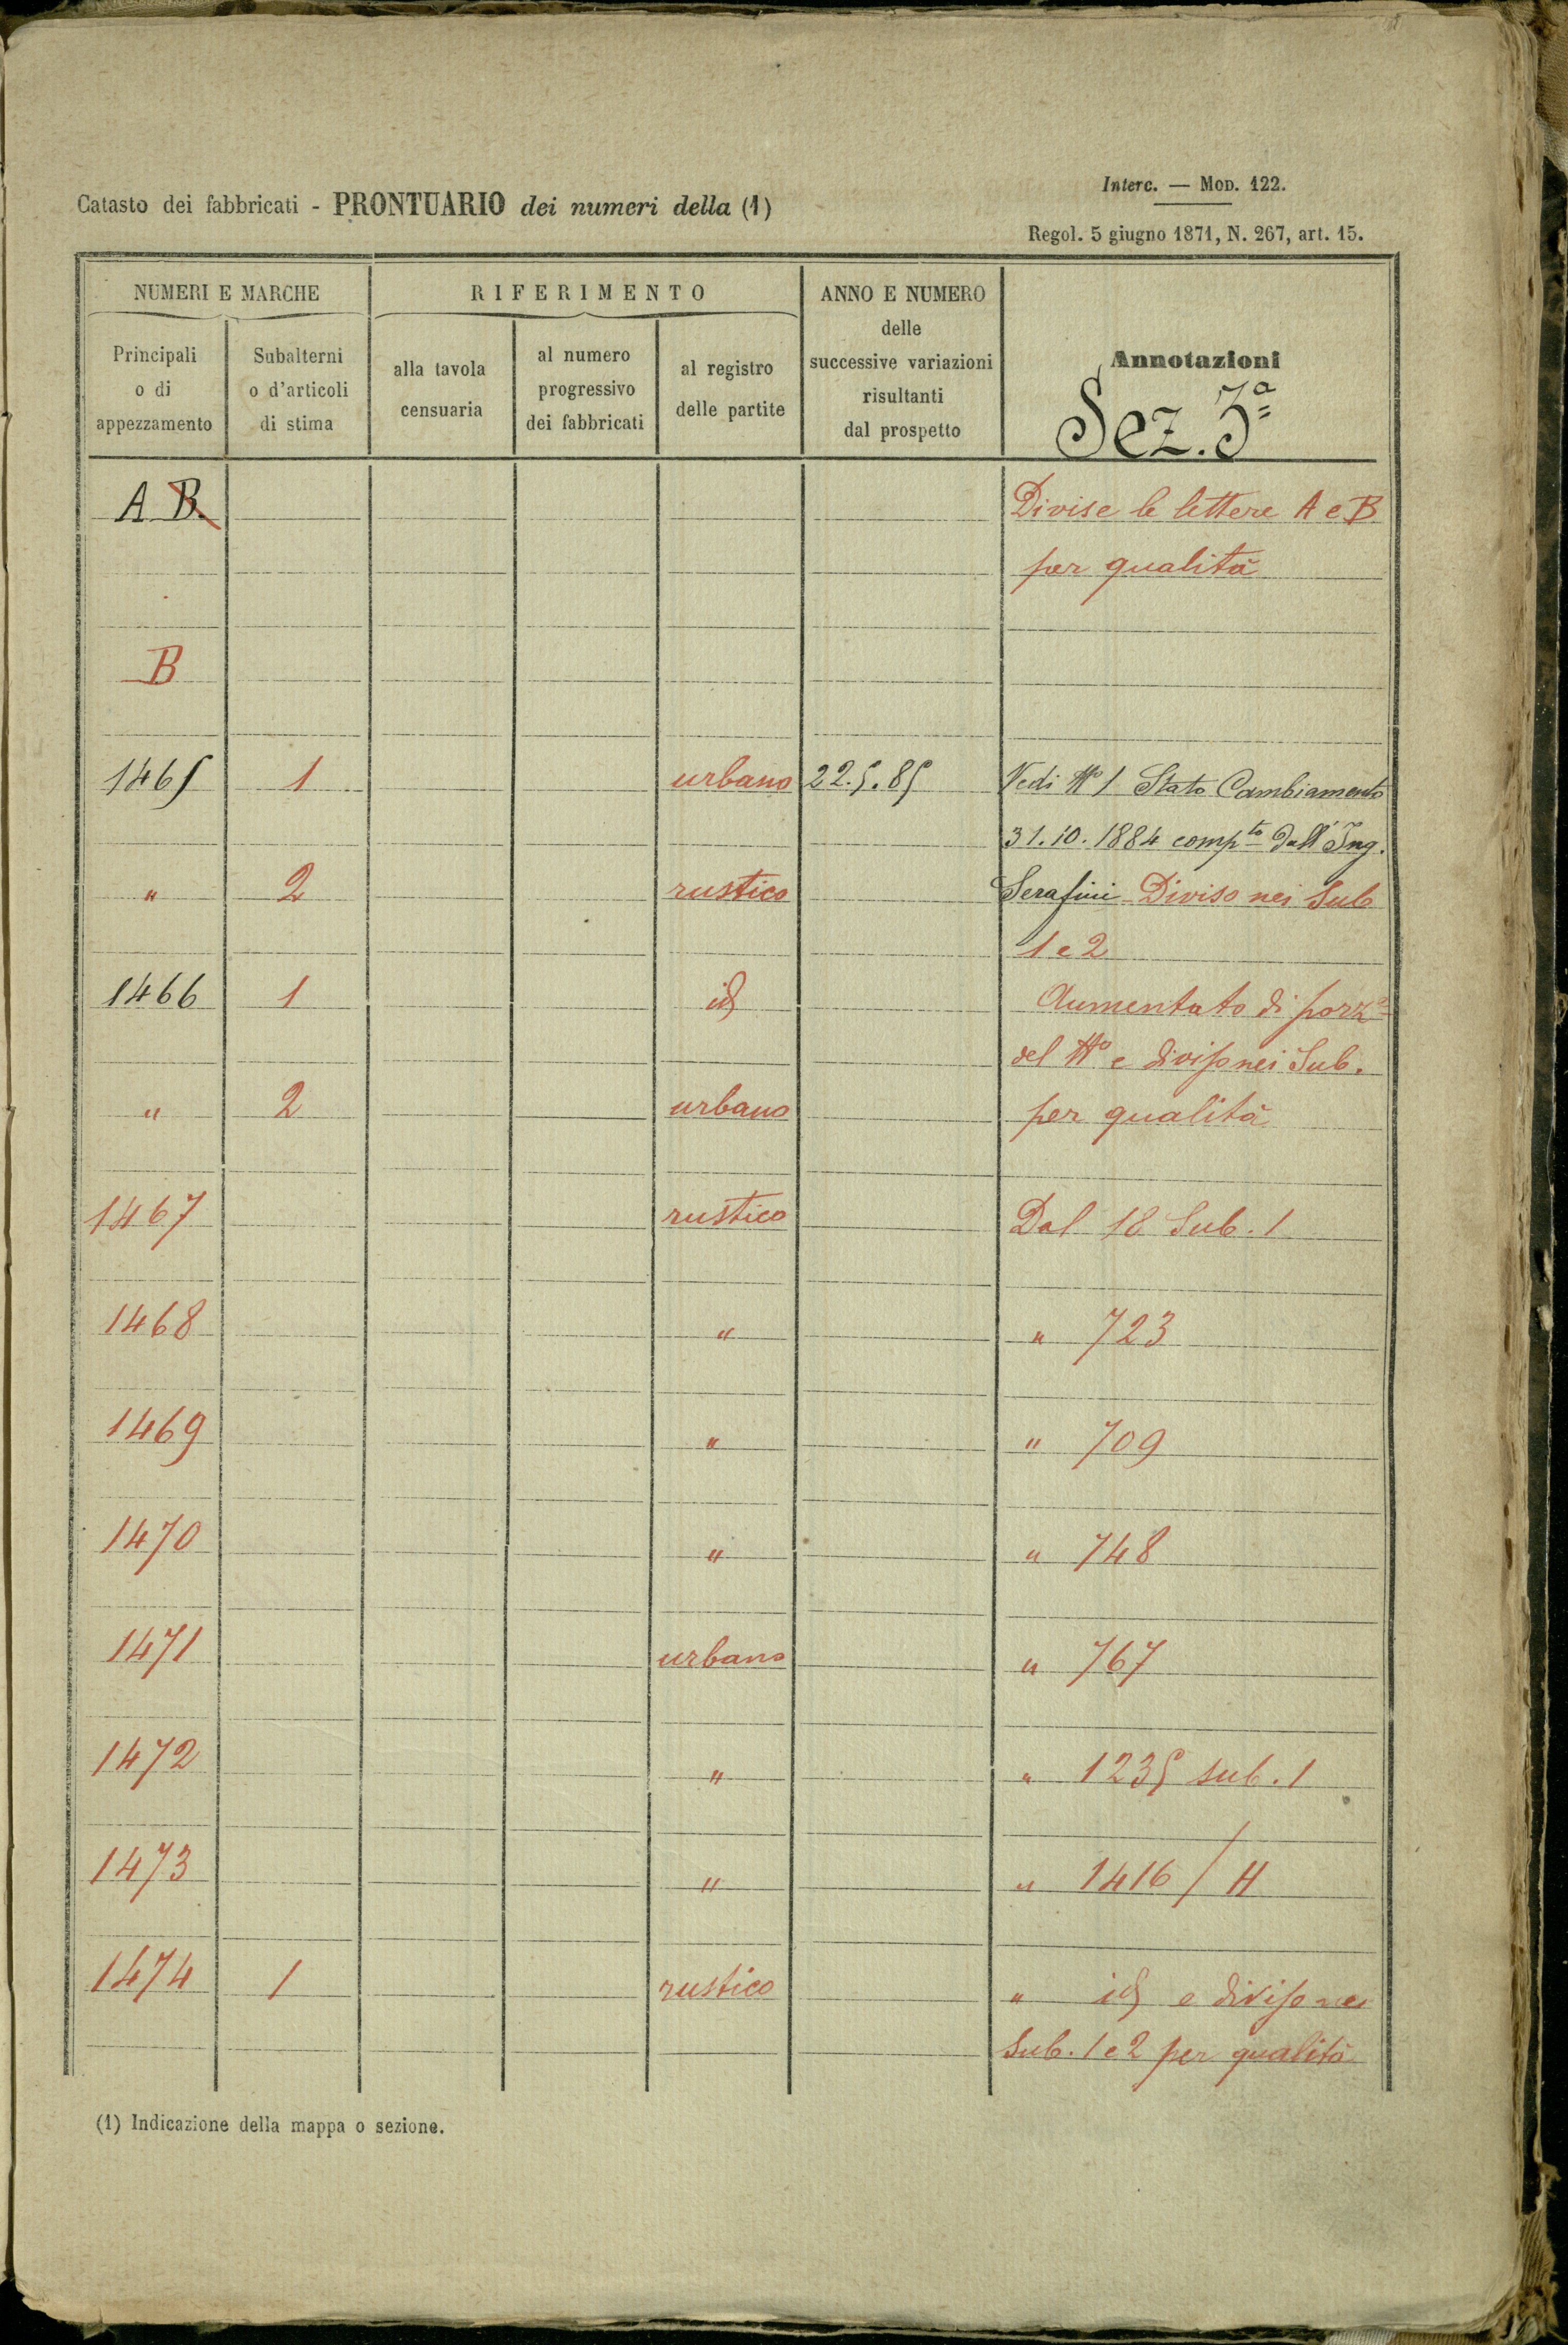 Interc. — MOD. 122.
Catasto dei fabbricati - PRONTUARIO dei numeri della (1)
Regol. 5 giugno 1871, N. 267, art. 15.
NUMERI E MARCHE
RIFERIMENTO
ANNO E NUMERO
delle
successive variazioni
risultanti
dal prospetto
Annotazioni
Principali
o di
appezzamento
Subalterni
o d'articoli
di stima
alla tavola
censuaria
al numero
progressivo
dei fabbricati
al registro
delle partite
Sez. 3ª
A B. Divise le lettere A e B
per qualità
B
1465 1 urbano 22.5.85 Vedi Nº 1 Stato Cambiamento
31.10.1884 compto dall'Ing.
" 2 rustico Serafini - Diviso nei Sub
1 e 2
1466 1 id Aumentato di porzª
del Nº e diviso nei Sub.
" 2 urbano per qualità
1467 rustico Dal 18 Sub. 1
1468 " " 723
1469 " " 709
1470 " " 748
1471 urbano " 767
1472 " " 1235 sub. 1
1473 " " 1416 / H
1474 1 rustico " id e diviso nei
Sub. 1 e 2 per qualità
(1) Indicazione della mappa o sezione.